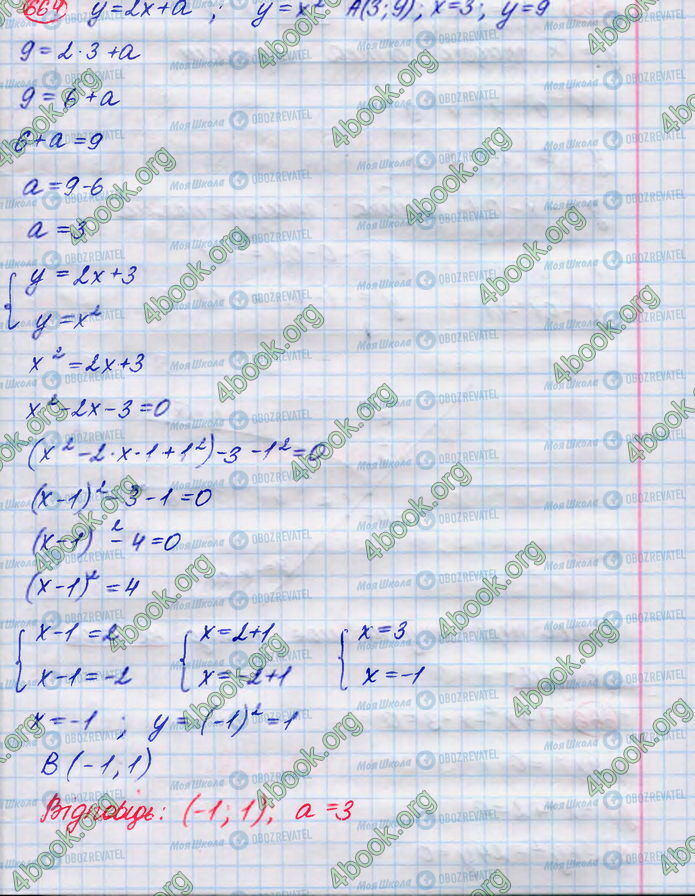 664 y=2x+a ; y=x² A(3;9); x=3; y=9
9=2·3+a
9=6+a
6+a=9
a=9-6
a=3
{ y=2x+3
y=x²
x²=2x+3
x²-2x-3=0
(x²-2·x·1+1²)-3-1²=0
(x-1)²-3-1=0
(x-1)²-4=0
(x-1)²=4
{ x-1=2 { x=2+1 { x=3
x-1=-2 x=-2+1 x=-1
x=-1 ; y=(-1)²=1
B(-1,1)
Відповідь: (-1; 1), a=3
4book.org
Моя Школа OBOZREVATEL